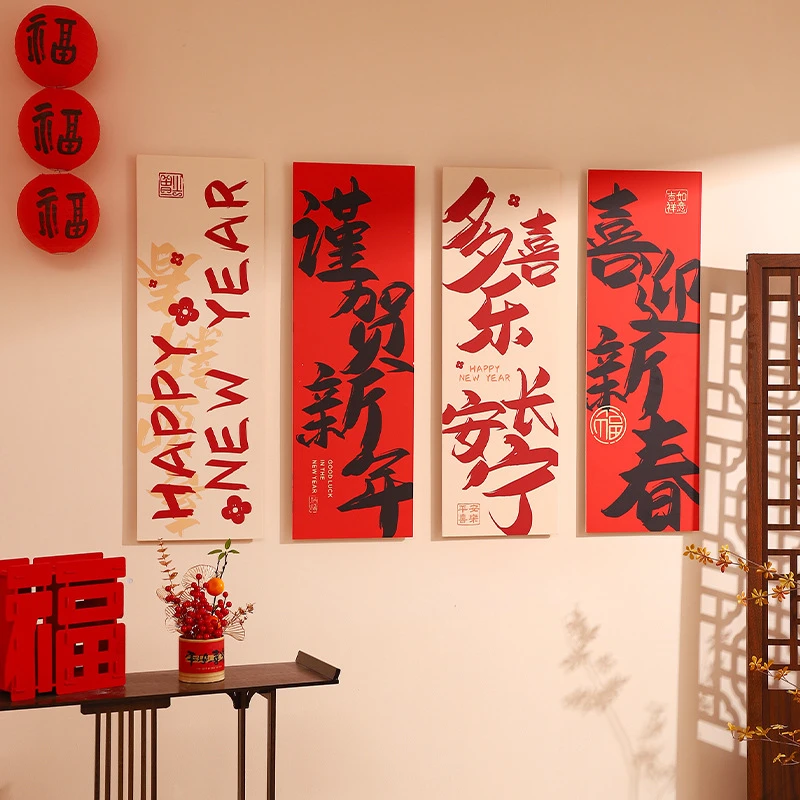 福
福
福
HAPPY
NEW YEAR
谨贺
新年
GOOD LUCK
IN THE
NEW YEAR
多喜
乐
HAPPY
NEW YEAR
长
安宁
如意
吉祥
喜迎
新春
福
福